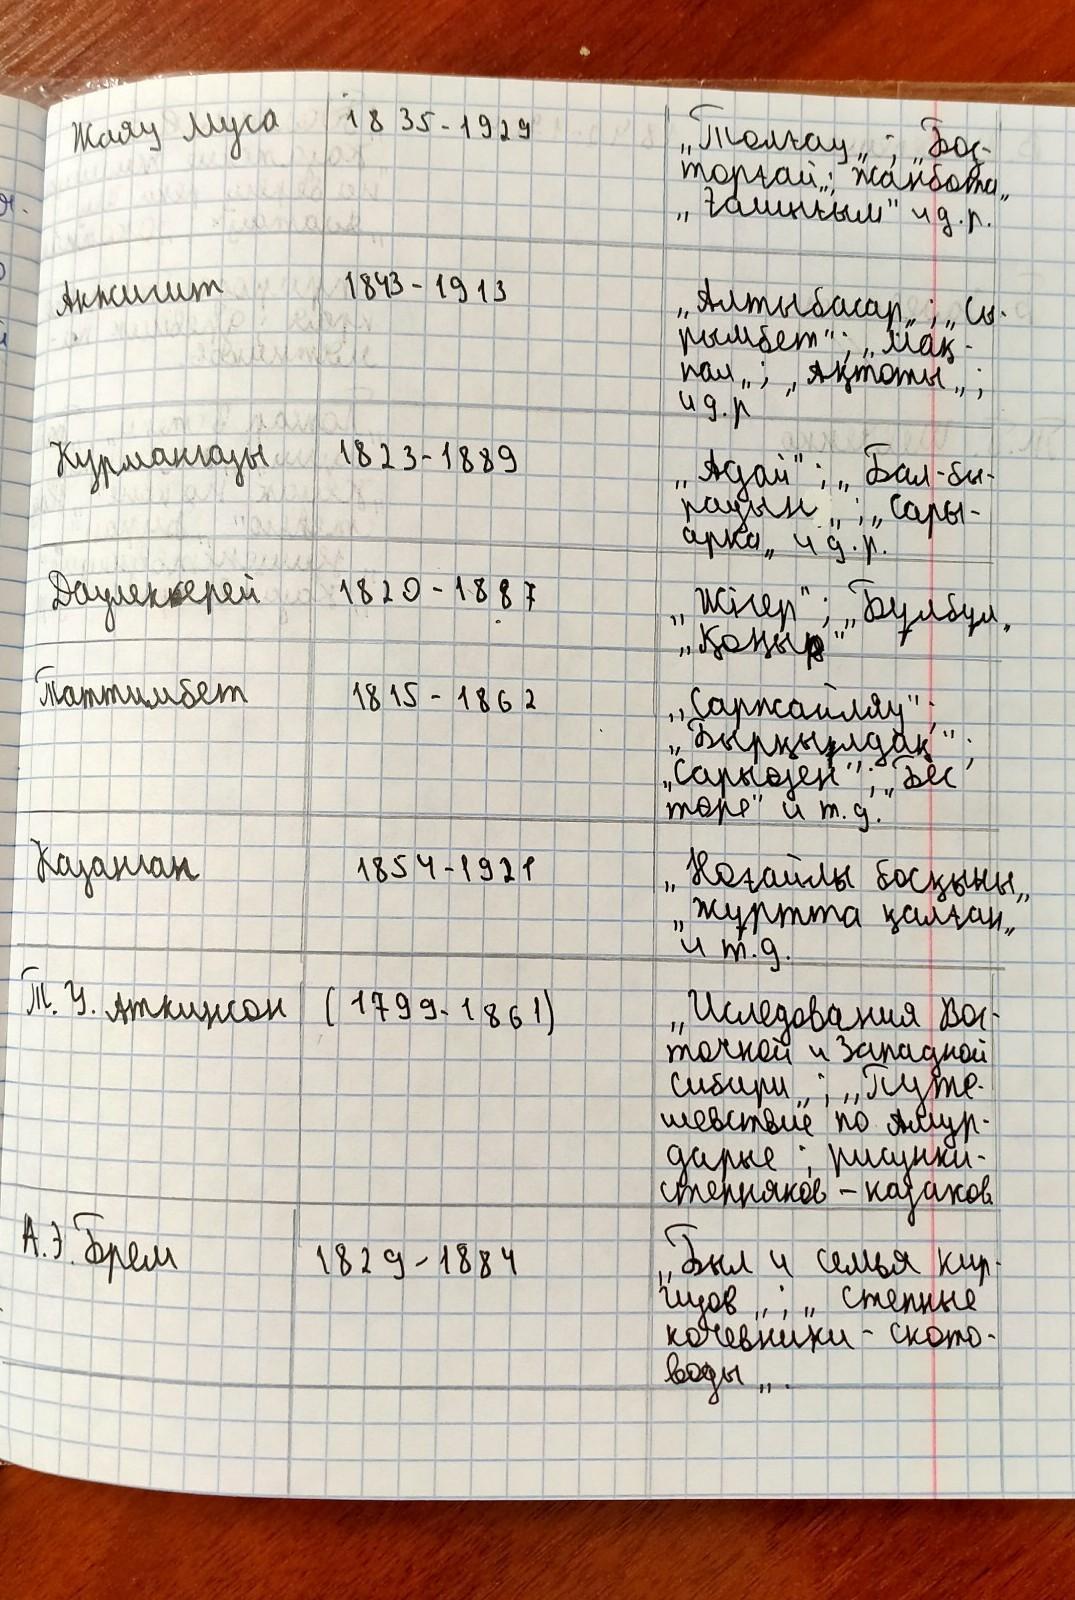 Жаяу Муса 1835-1929 „Толғау„ ; „Боз-
торғай„; Жанбота„
„Ғашығым" и д.р.
Акжигит 1843-1913 „Алтыбасар„ ; „Сы-
рымбет" ; „Мақ-
пал„ ; „Ақтоты„ ;
и д.р
Курмангазы 1823-1889 „Адай" ; „Бал-бы-
рауын„ ; „Сары-
арка„ и д.р.
Даулеткерей 1820-1887 „Жігер" ; „Бұлбұл„
„Қоңыр"
Таттимбет 1815-1862 „Саржайляу" ;
„Бырқылдақ" ;
„Сарыөзен" ; „Бес
төре" и т.д.
Казанган 1854-1921 „Ноғайлы босқыны„
„Жұртта қалған„
и т.д.
Т. У. Аткинсон (1799-1861) „Иследования Вос-
точной и Западной
Сибири„ ; „Путе-
шевствие по Амур-
дарье ; рисунки-
степняков – казахов
А.Э. Брем 1829-1884 „Был и семья кир-
гизов„ ; „степные
кочевники – ското-
воды„.